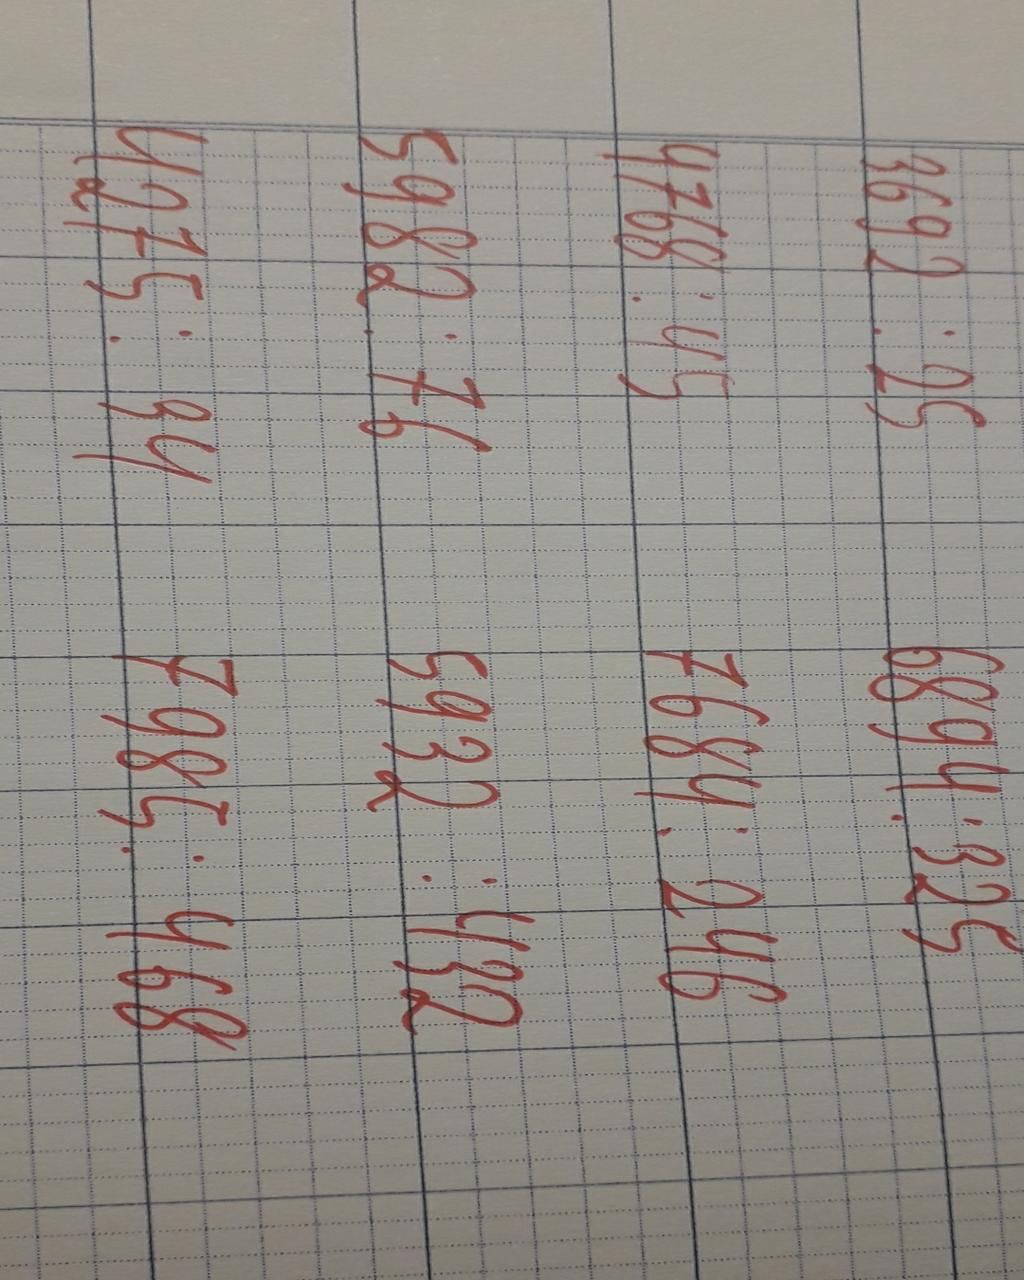 3692 : 25 6894 : 325
4768 : 45 7684 : 246
5982 : 76 5932 : 432
4275 : 34 7985 : 468